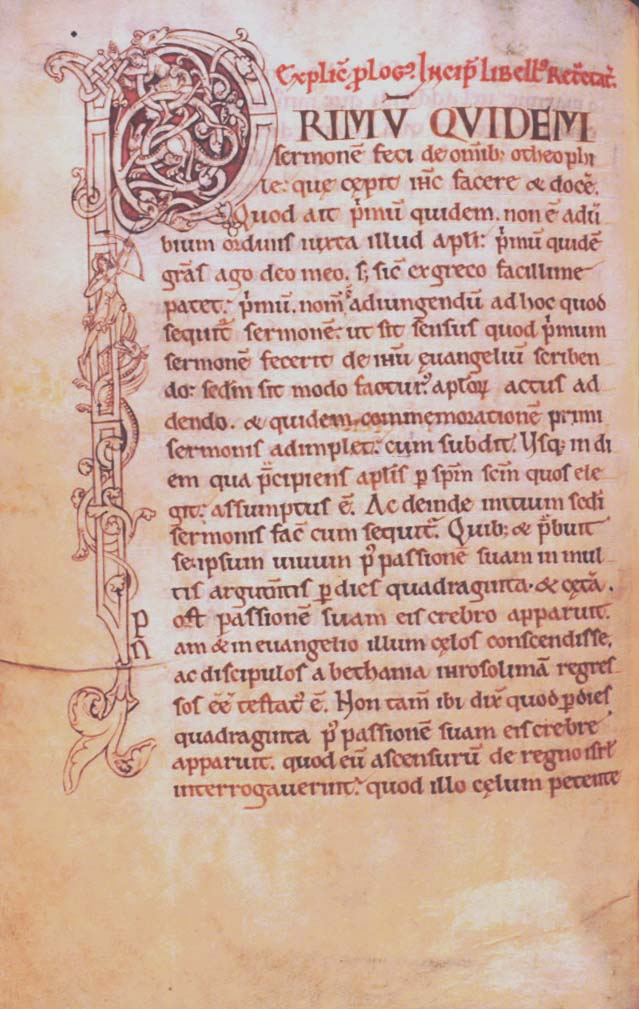 Explic̄ p̄log᷒. Incip̄ Libell᷒ Ret̄ctat̄.
PRIMŪ QVIDEM
sermonē feci de om̄ib; o theophi
le. que cępit iħc facere & docē̄.
Quod ait p̄mū quidem. non ē adū
bium ordinis iuxta illud apl̄i: p̄mū quidē
grās ago deo meo. s; sic̄ ex greco facillime
patet. p̄mū. nom̄ adiungendū ad hoc quod
sequit̄ sermonē. ut sit sensus quod p̄mum
sermonē fecerit de ih̄u euangeliū scriben
do: sed̄m sit modo factur᷒ apl̄oꝝ actus ad
dendo. & quidem commemorationē primi
sermonis adimplet. cum subdit. Usq; in di
em qua p̄cipiens apl̄is ꝑ sp̄m sc̄m quos ele
git: assumptus ē. Ac deinde initium sc̄di
sermonis fac̄ cum sequit̄. Quib; & p̄buit
se ipsum uiuum p᷒ passionē suam in mul
tis argum̄tis ꝑ dies quadraginta. & cęt̄a.
Post passionē suam eis crebro apparuit.
Nam & in euangelio illum cęlos conscendisse,
ac discipulos a bethania in hrosolimā regres
sos eē̄ testat᷒ ē. Non tam̄ ibi dix̄ quod ꝑ dies
quadraginta p᷒ passionē suam eis crebre
apparuit. quod eū ascensurū de regno isrl̄
interrogauerint. quod illo cęlum petente